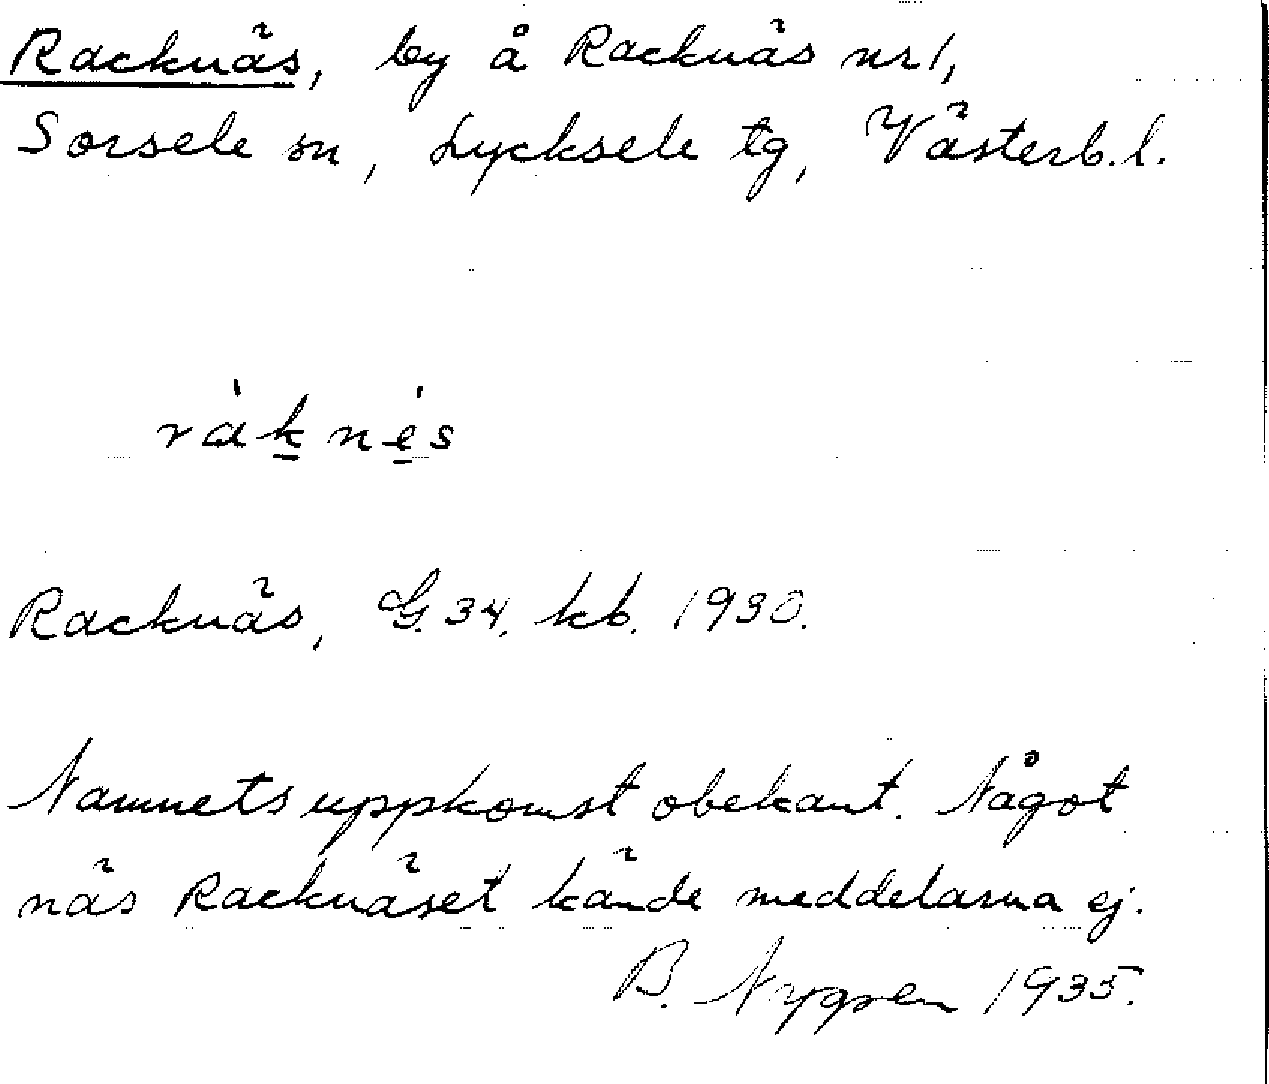 Racknäs, by å Racknäs nr 1,
Sorsele sn, Lycksele tg, Västerb. l.
ràknès
Racknäs, G. 34. kb. 1930.
Namnets uppkomst obekant. Något
näs Racknäset kände meddelarna ej.
B. Nygren 1935.